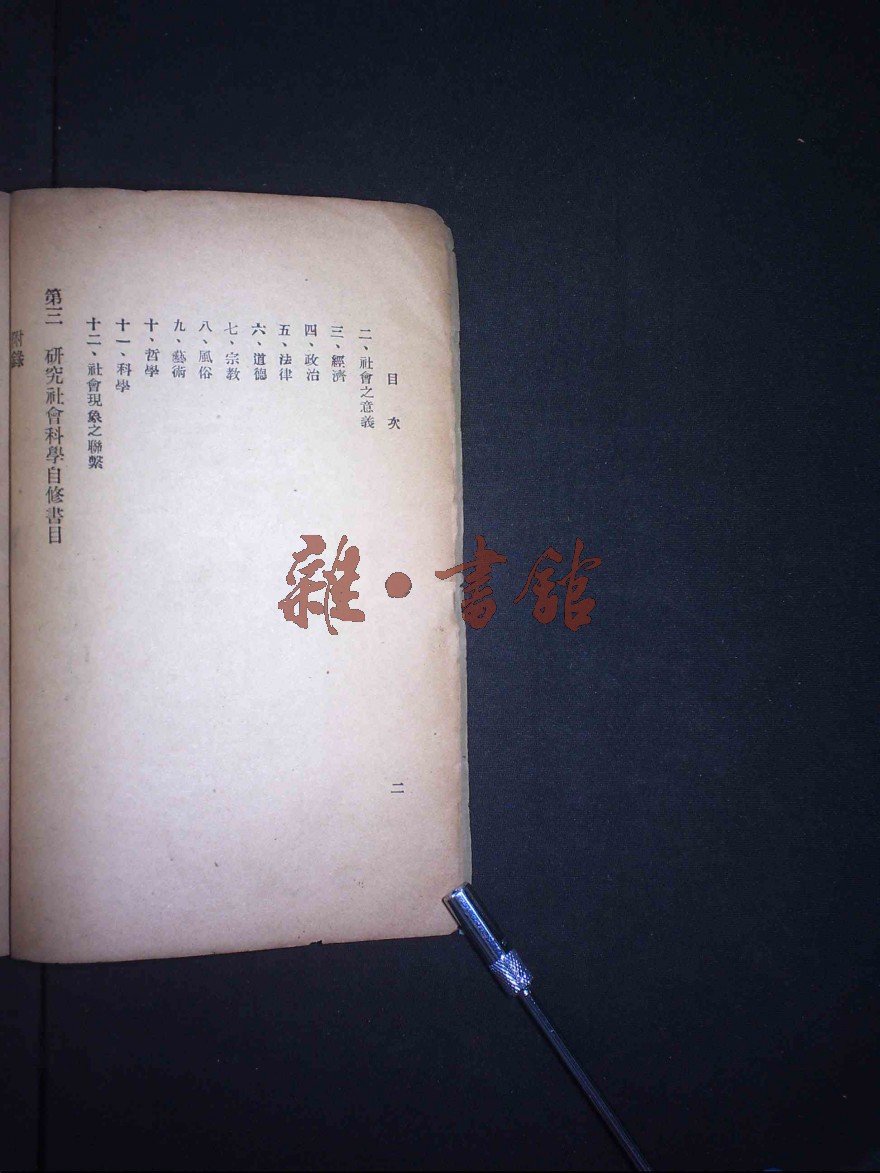 目次
二、社會之意義
三、經濟
四、政治
五、法律
六、道德
七、宗教
八、風俗
九、藝術
十、哲學
十一、科學
十二、社會現象之聯繫
第三 研究社會科學自修書目
附錄
二
雜·書館